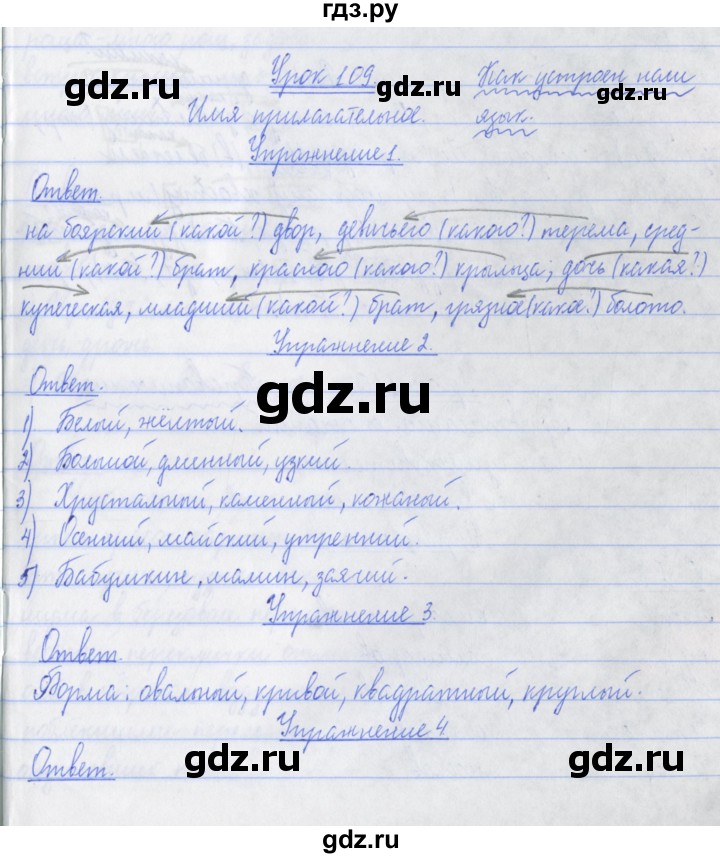 гдз.ру
gdz.ru gdz.ru gdz.ru
Урок 109. Как устроен наш
Имя прилагательное. язык.
Упражнение 1.
Ответ.
на боярский (какой?) двор, девичьего (какого?) терема, сред-
ний (какой?) брат, красного (какого?) крыльца, дочь (какая?)
купеческая, младший (какой?) брат, грязное (какое?) болото.
Упражнение 2.
Ответ.
gdz.ru
1) Белый, жёлтый.
2) Большой, длинный, узкий.
3) Хрустальный, каменный, кожаный.
4) Осенний, майский, утренний.
5) Бабушкин, мамин, заячий.
Упражнение 3.
Ответ.
Форма: овальный, кривой, квадратный, круглый.
Упражнение 4
Ответ.
gdz.ru gdz.ru
gdz.ru